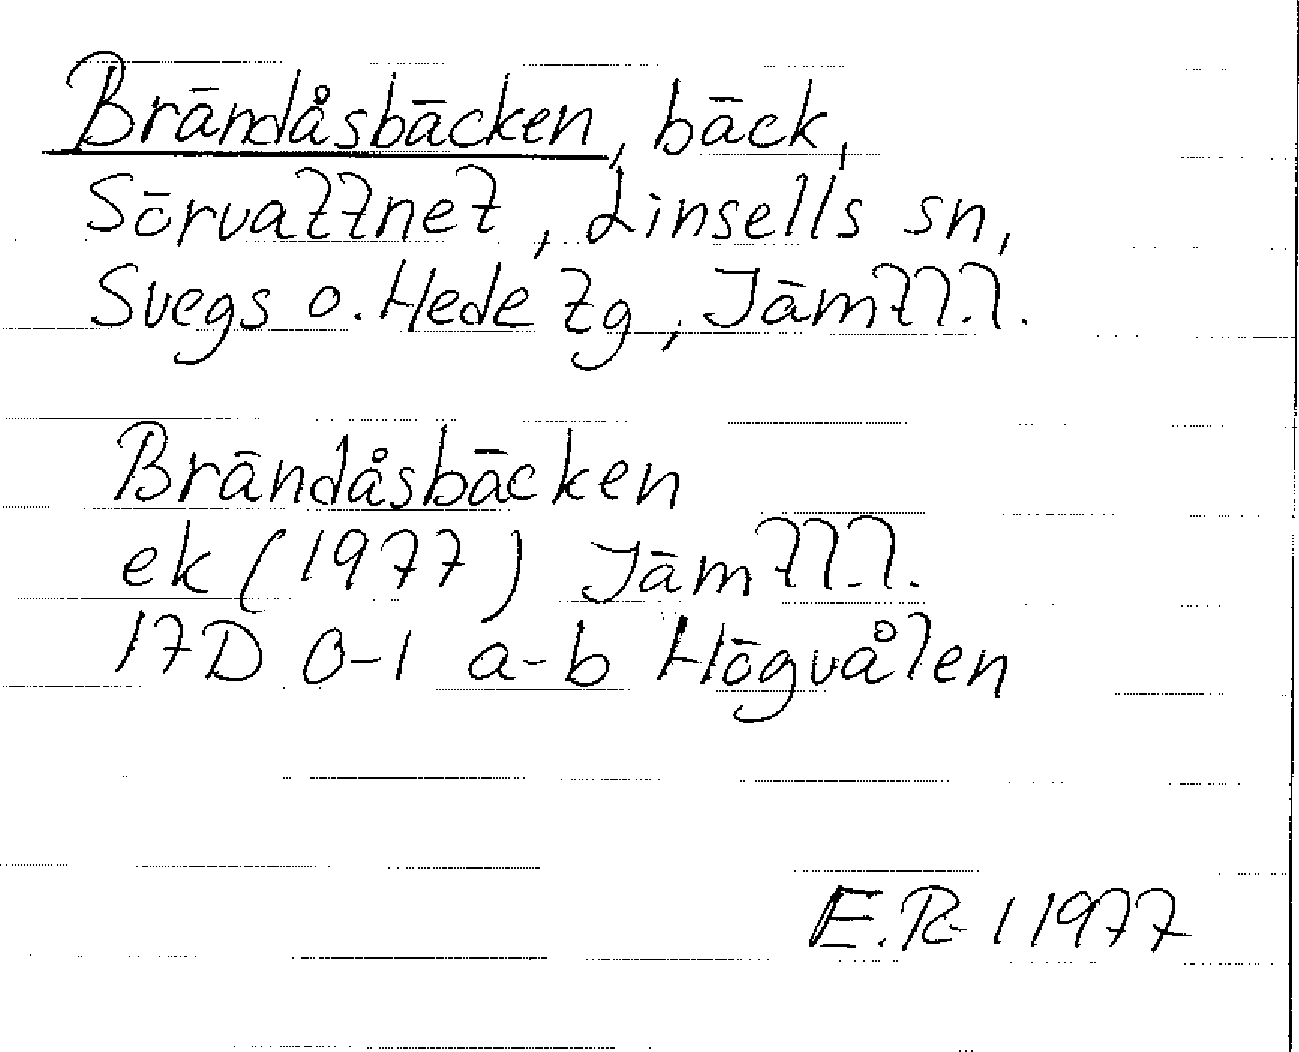 Brändåsbäcken, bäck,
Sörvattnet, Linsells sn,
Svegs o. Hede tg, Jämtl.l.
Brändåsbäcken
ek (1977) Jämtl.l.
17D 0-1 a-b Högvålen
E.R- 1 1977